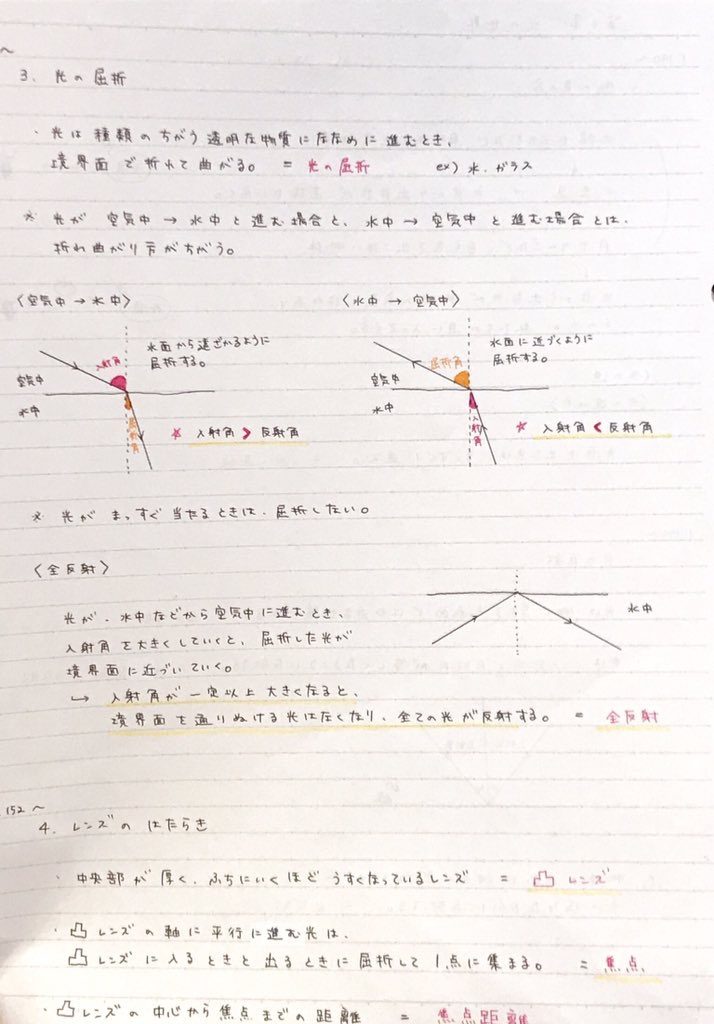 3. 光の屈折
・光は種類のちがう透明な物質にななめに進むとき、
境界面で折れて曲がる。 = 光の屈折 ex) 水、ガラス
※ 光が 空気中 → 水中 と進む場合と、水中 → 空気中 と進む場合とは、
折れ曲がり方がちがう。
〈空気中 → 水中〉
水面から遠ざかるように
屈折する。
入射角
空気中
水中
屈折角
☆ 入射角 > 反射角
〈水中 → 空気中〉
水面に近づくように
屈折する。
屈折角
空気中
水中
入射角
☆ 入射角 < 反射角
※ 光が まっすぐ当たるときは、屈折しない。
〈全反射〉
光が、水中などから空気中に進むとき、
入射角を大きくしていくと、屈折した光が
境界面に近づいていく。
→ 入射角が一定以上大きくなると、
境界面を通りぬける光はなくなり、全ての光が反射する。 = 全反射
水中
152 〜
4. レンズのはたらき
・中央部が厚く、ふちにいくほどうすくなっているレンズ = 凸レンズ
・凸レンズの軸に平行に進む光は、
凸レンズに入るときと出るときに屈折して1点に集まる。 = 焦点
・凸レンズの中心から焦点までの距離 = 焦点距離